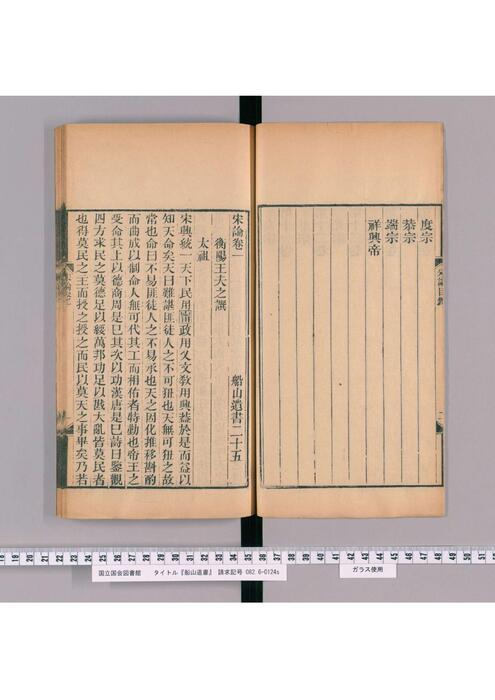 度宗
恭宗
端宗
祥興帝
宋論目錄
二
宋論卷一　船山遺書二十五
衡陽王夫之譔
太祖
宋興統一天下民用寧政用乂文敎用興蓋於是而益以
知天命矣天曰難諶匪徒人之不可狃也天無可狃之故
常也命曰不易匪徒人之不易承也天之因化推移斟酌
而曲成以制命人無可代其工而相佑者特勤也帝王之
受命其上以德商周是已其次以功漢唐是已詩曰鑒觀
四方求民之莫德足以綏萬邦功足以戡大亂皆莫民者
也得莫民之主而授之授之而民以莫天之事畢矣乃若
18 19 20 21 22 23 24 25 26 27 28 29 30 31 32 33 34 35 36 37 38 39 40 41 42 43 44 45 46 47 48 49 50 51
国立国会図書館　タイトル『船山遺書』　請求記号 082.6-O124s
ガラス使用